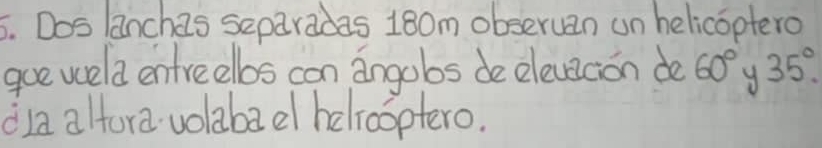 5. Dos lanchas separadas 180m observan un helicóptero
que vuela entre ellos con ángulos de elevación de 60° y 35°.
¿la altura volaba el helicóptero.